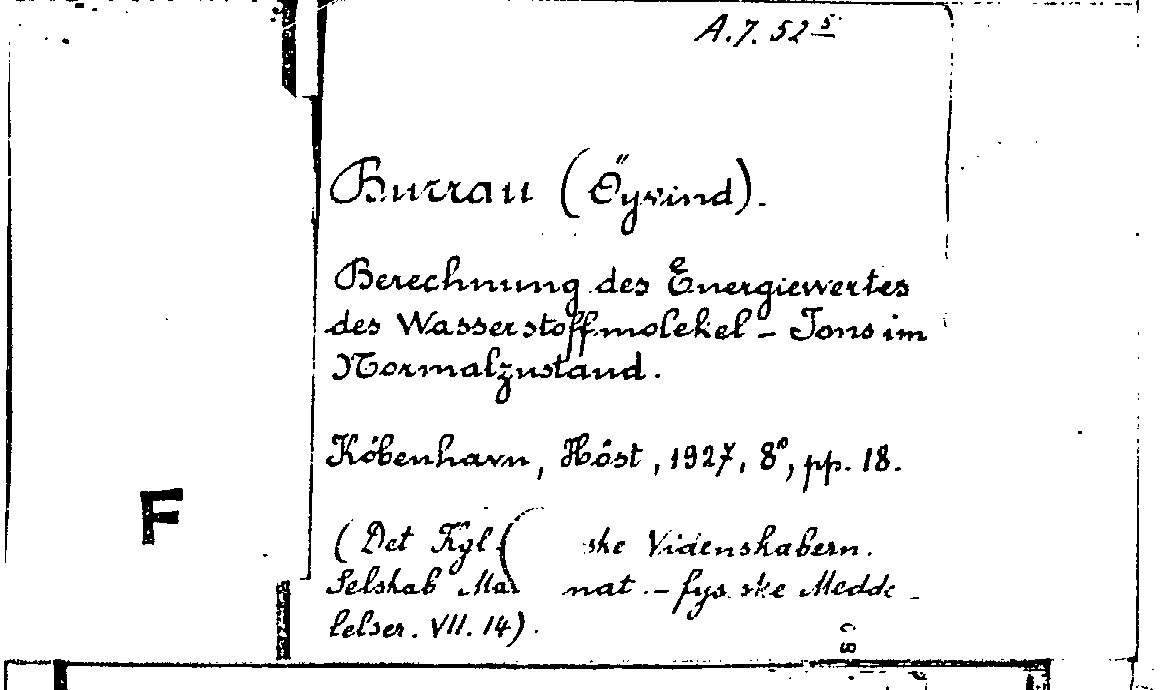 A.7. 52 5
Burrau (Öyvind).
Berechnung des Energiewertes
des Wasserstoffmolekel - Jons im
Normalzustand.
Kóbenhavn, Hóst, 1927, 8°, pp. 18.
F
( Det Kgl. ske Videnskabern.
Selskab Ma nat.- fys ske Medde -
lelser. VII. 14).